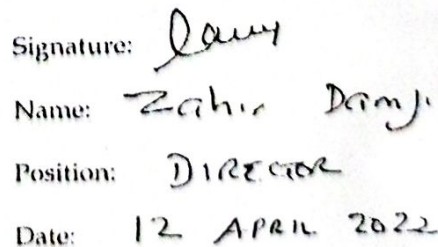 Signature:
Name: Zahir Damji
Position: DIRECTOR
Date: 12 APRIL 2022